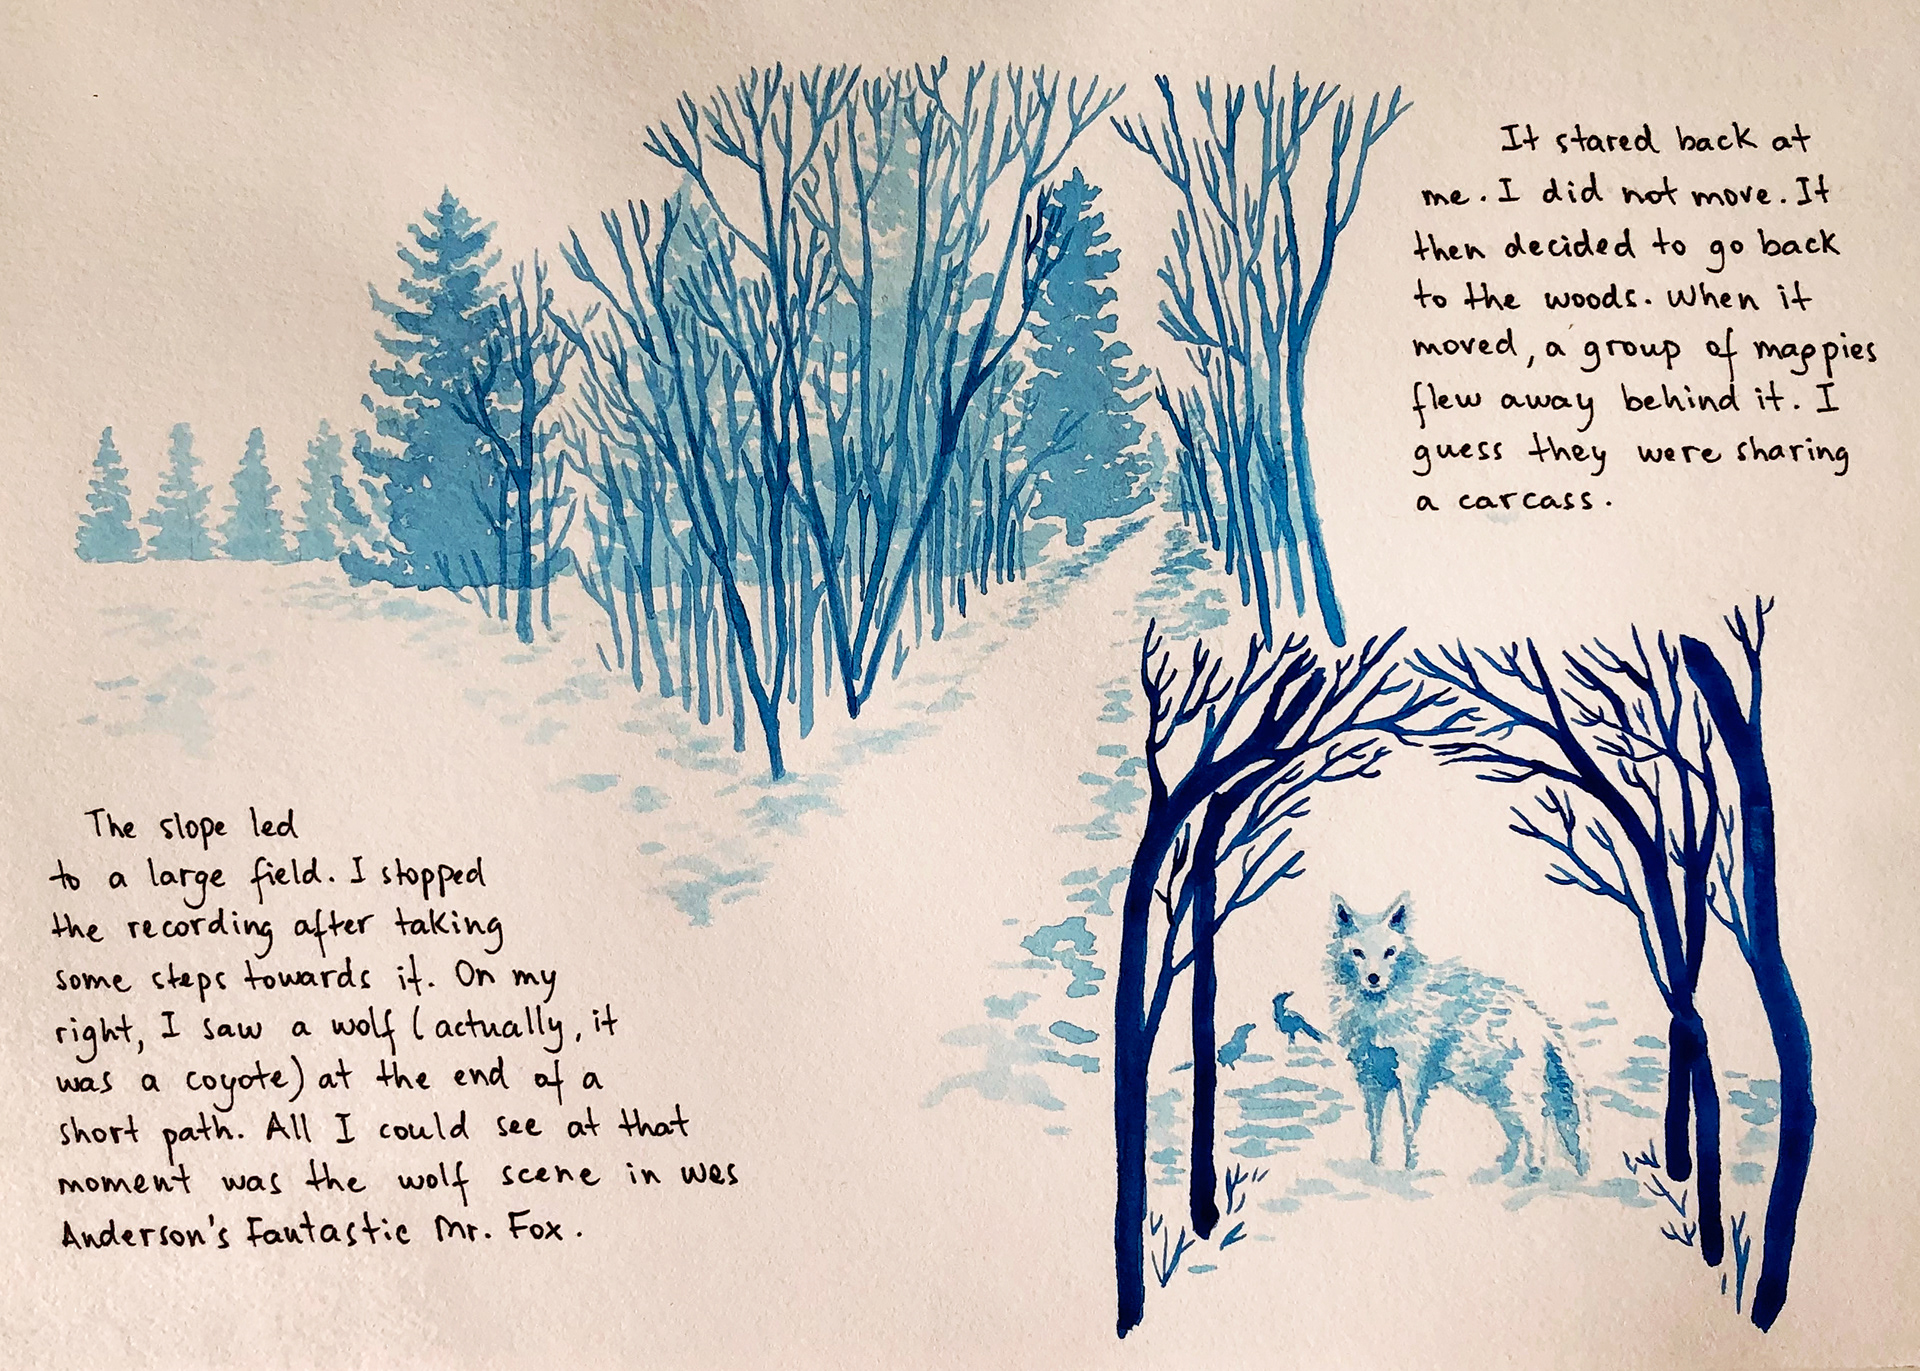 The slope led
to a large field. I stopped
the recording after taking
some steps towards it. On my
right, I saw a wolf (actually, it
was a coyote) at the end of a
short path. All I could see at that
moment was the wolf scene in wes
Anderson's Fantastic Mr. Fox.
It stared back at
me. I did not move. It
then decided to go back
to the woods. When it
moved, a group of magpies
flew away behind it. I
guess they were sharing
a carcass.